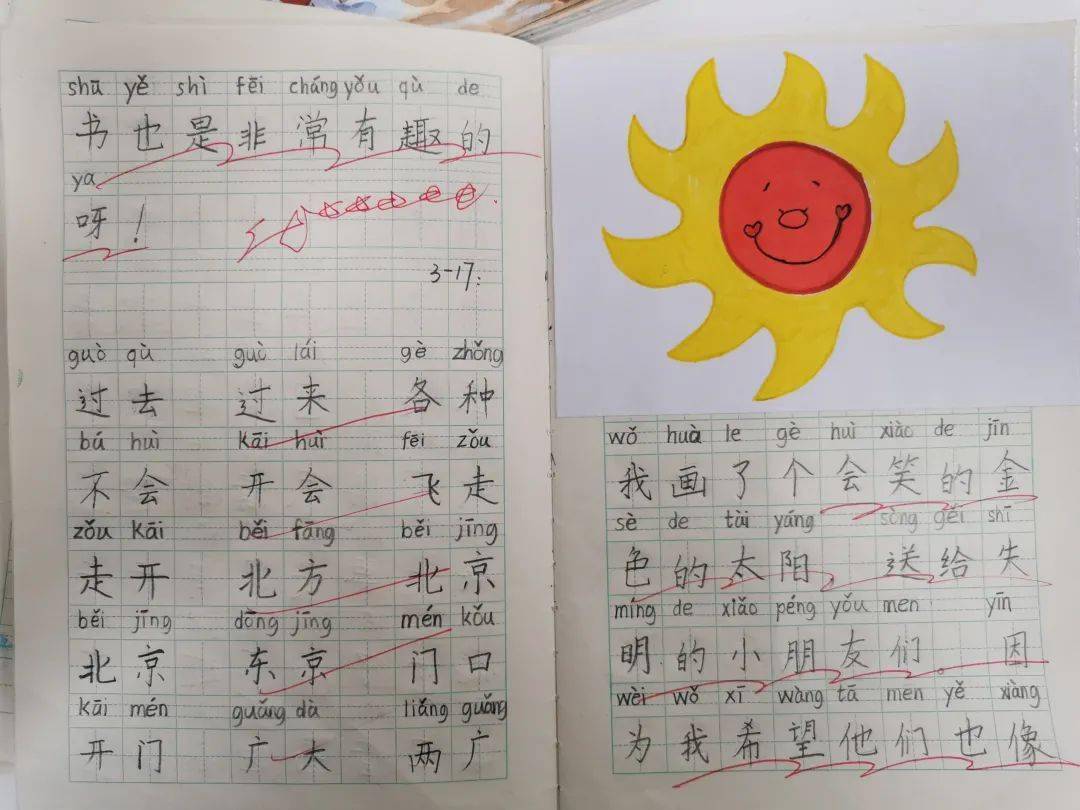 shū yě shì fēi cháng yǒu qù de
书也是非常有趣的
ya
呀！
3-17:
guò qù guò lái gè zhǒng
过去 过来 各种
bú huì kāi huì fēi zǒu
不会 开会 飞走
zǒu kāi běi fāng běi jīng
走开 北方 北京
běi jīng dōng jīng mén kǒu
北京 东京 门口
kāi mén guǎng dà liǎng guǎng
开门 广大 两广
wǒ huà le gè huì xiào de jīn
我画了个会笑的金
sè de tài yáng sòng gěi shī
色的太阳，送给失
míng de xiǎo péng yǒu men yīn
明的小朋友们。因
wèi wǒ xī wàng tā men yě xiàng
为我希望他们也像